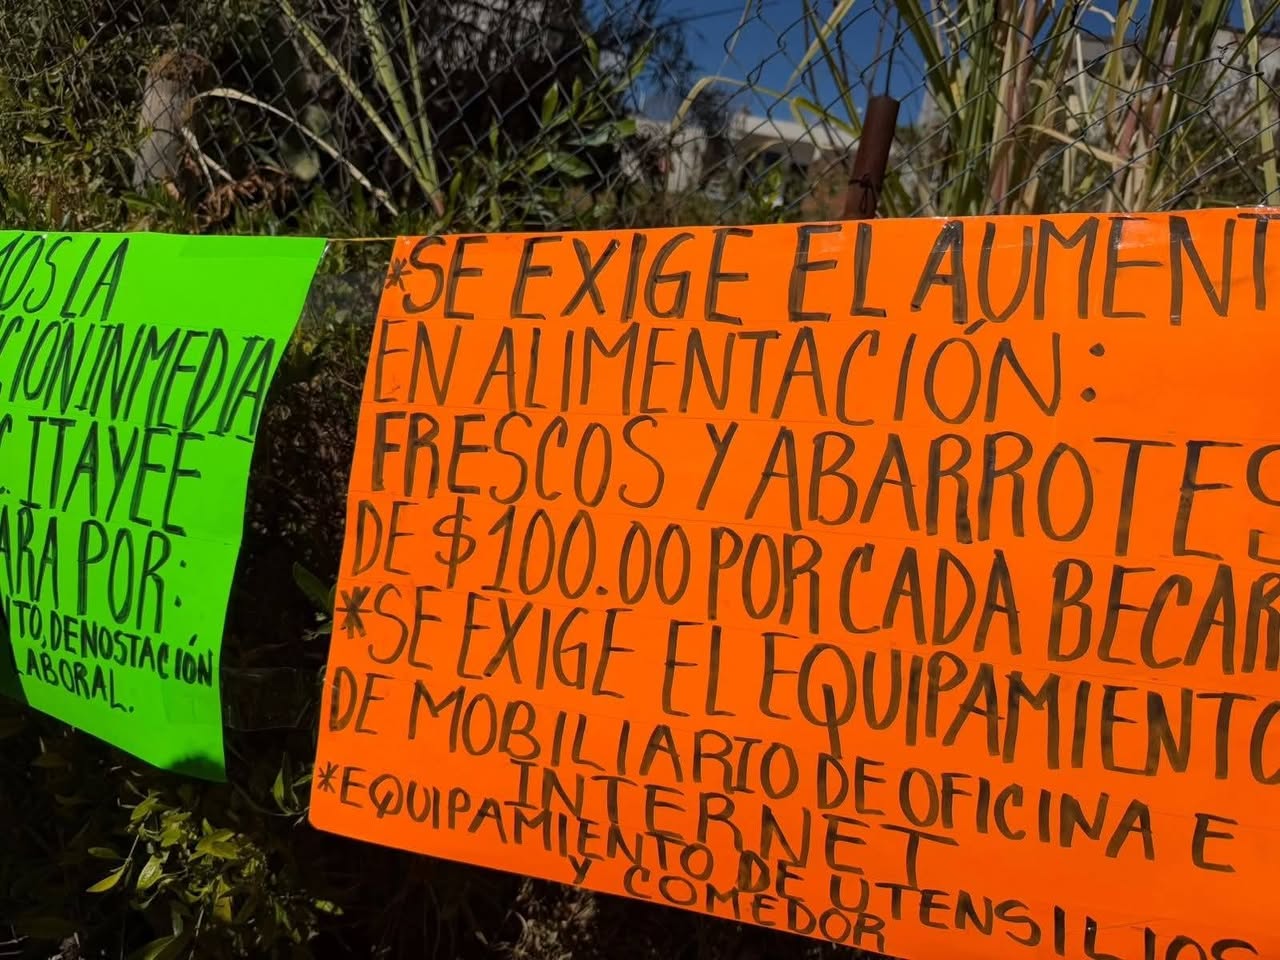 MOS LA
CIÓN INMEDIA
C. ITAYEE
ARA POR:
TO, DENOSTACIÓN
LABORAL.
*SE EXIGE EL AUMENT
EN ALIMENTACIÓN:
FRESCOS Y ABARROTES
DE $100.00 POR CADA BECAR
*SE EXIGE EL EQUIPAMIENTO
DE MOBILIARIO DE OFICINA E
INTERNET
*EQUIPAMIENTO DE UTENSILIOS
Y COMEDOR